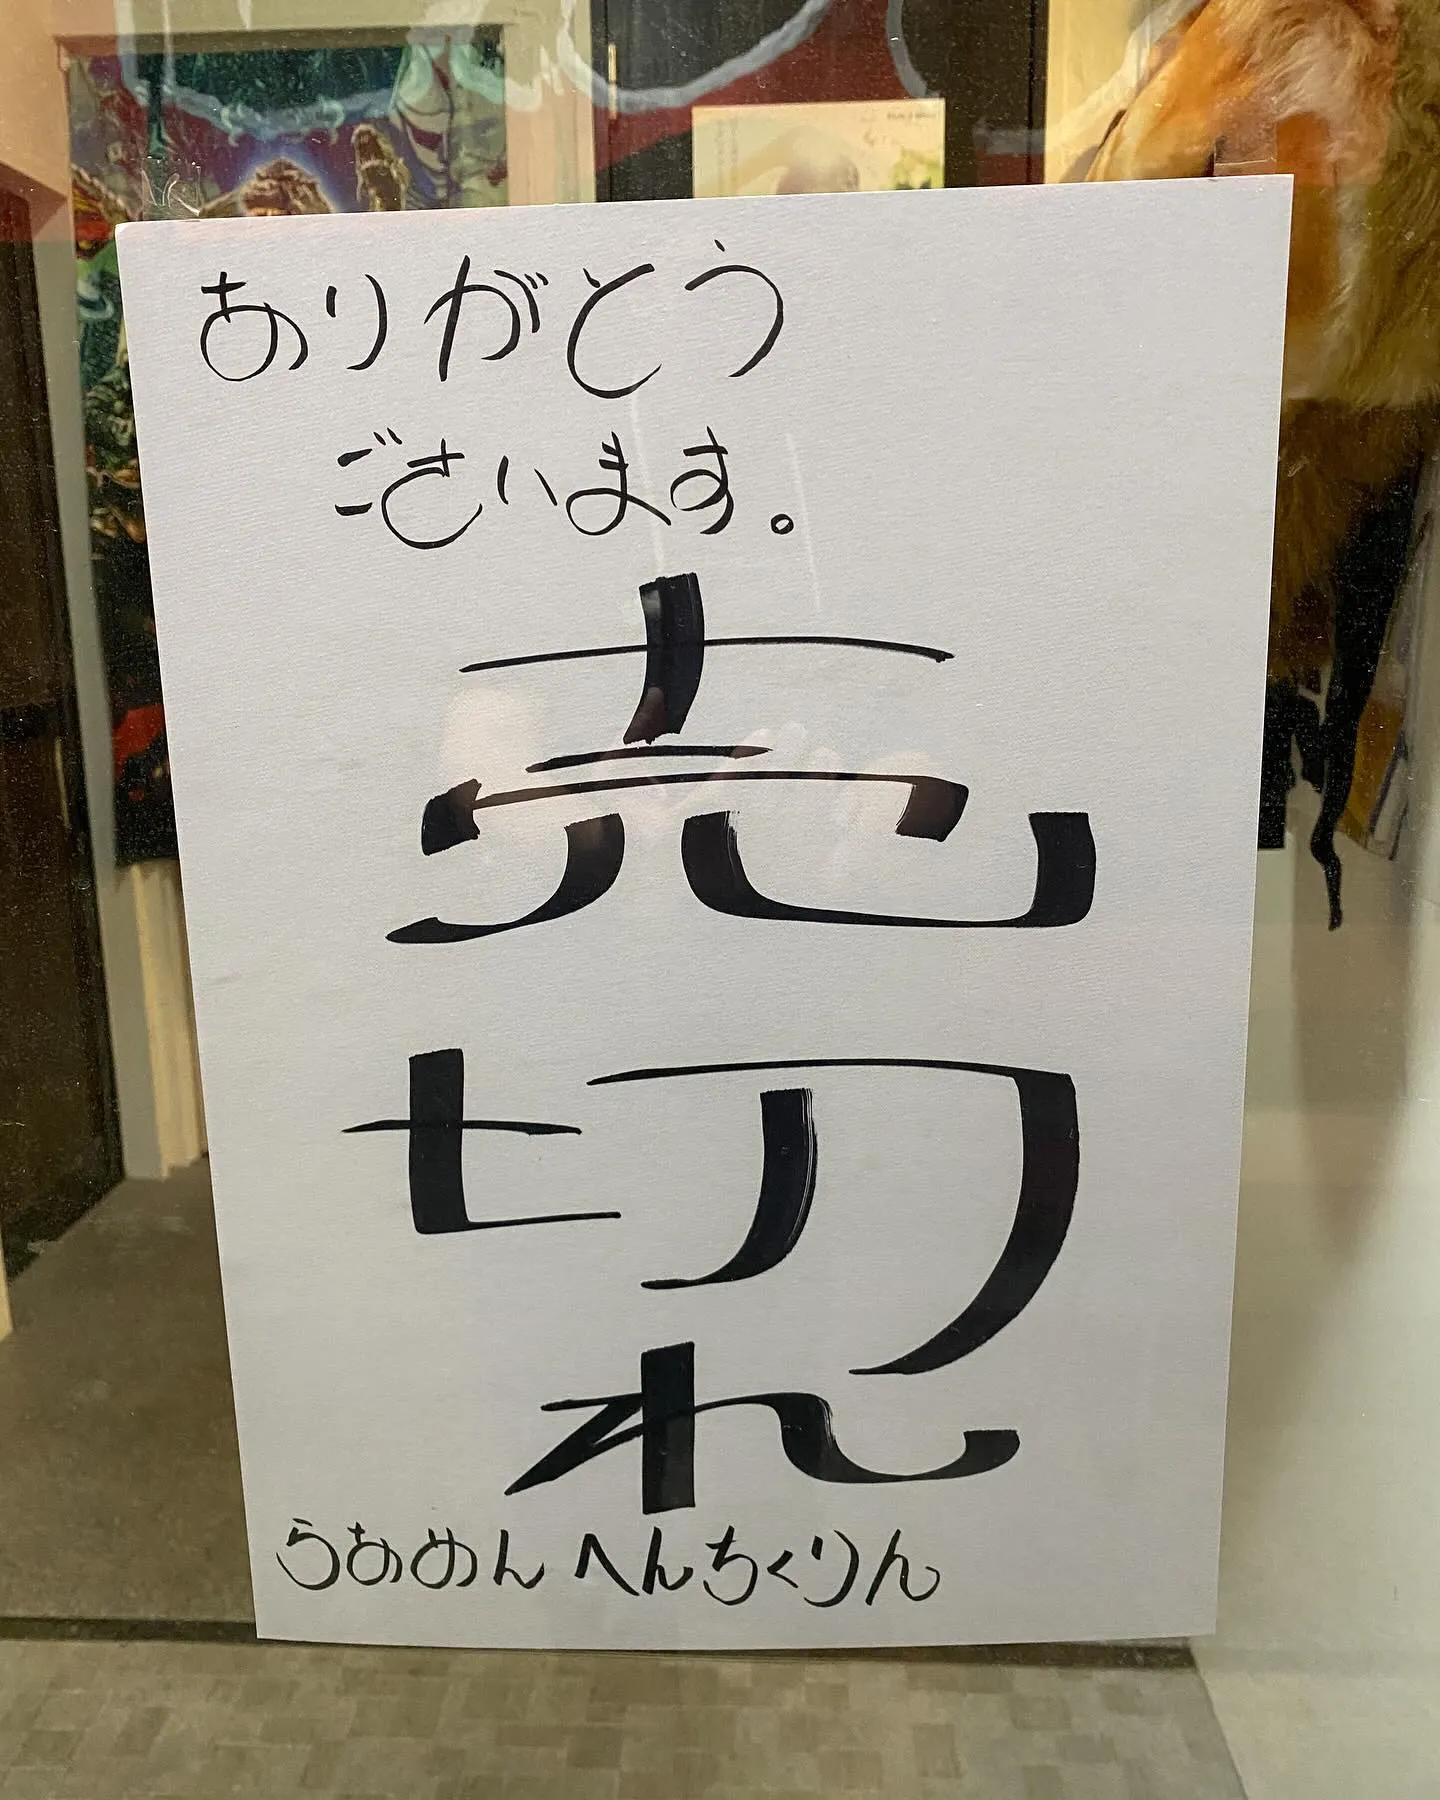 ありがとう
ございます。
売
切
れ
らあめんへんちくりん